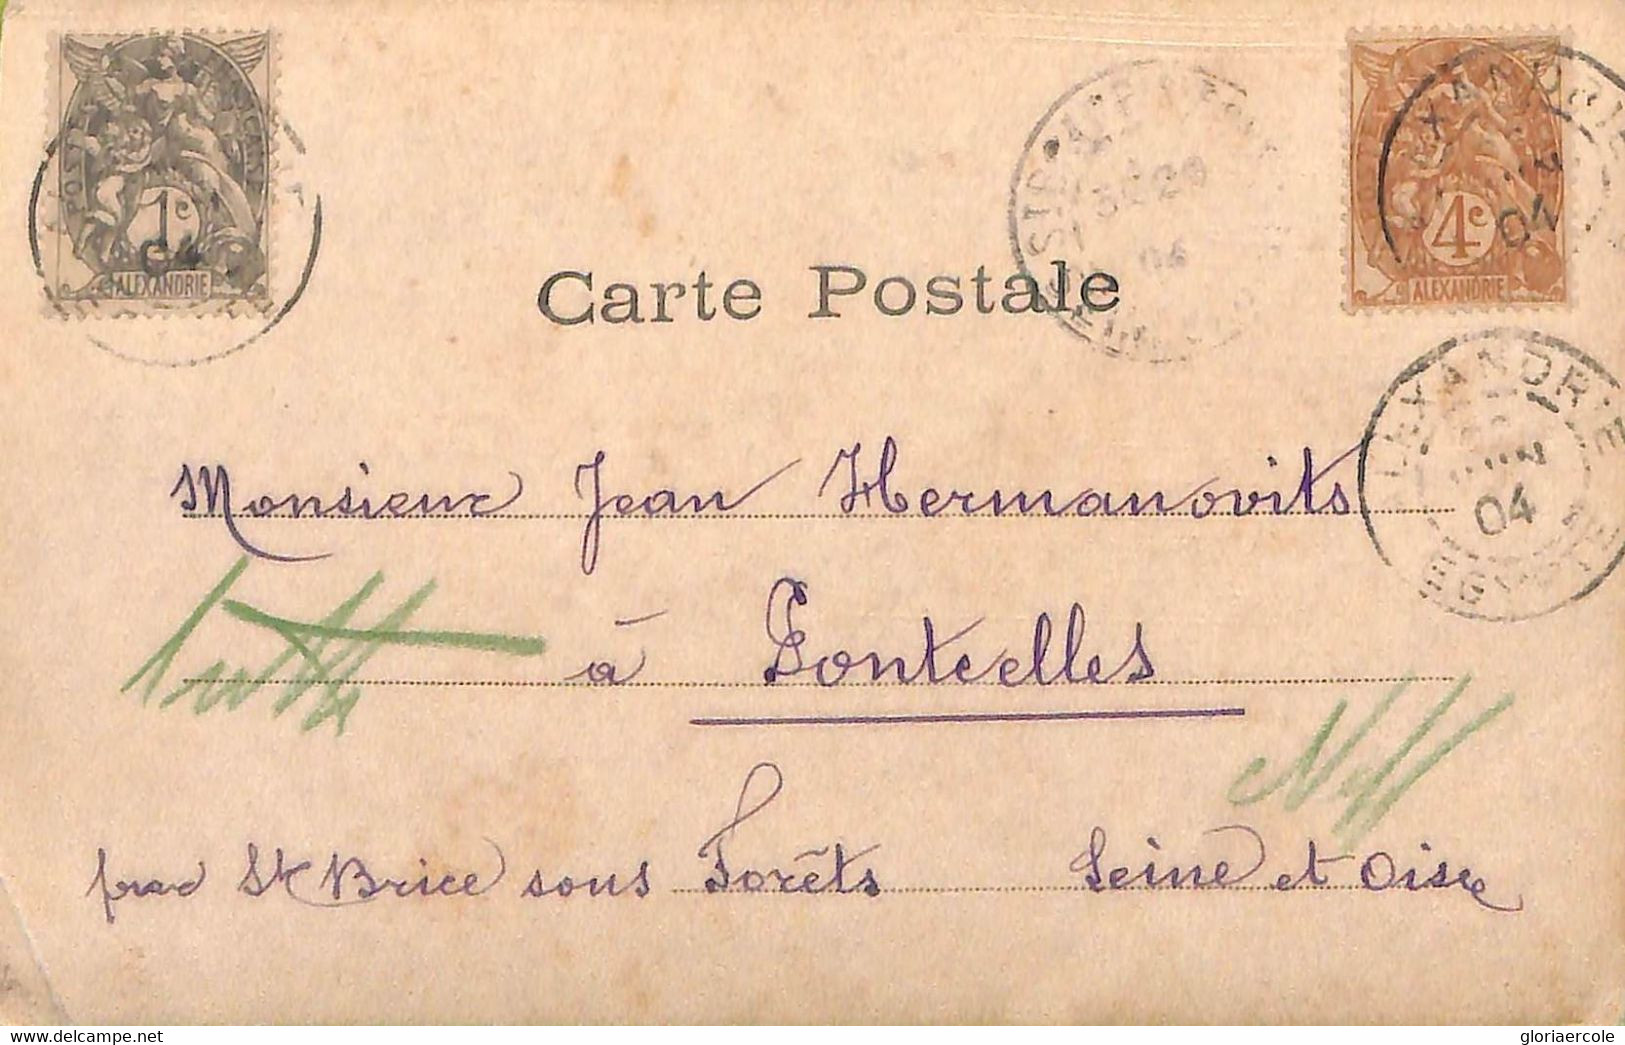 POSTE
1c
ALEXANDRIE
04
4c
ALEXANDRIE
ALEXANDRIE
04
Carte Postale
ALEXANDRIE
04
EGYPTE
Monsieur Jean Hermanovits
à Pontcelles
par St Brice sous Forêts Seine et Oise
delcampe.net
gloriaercole